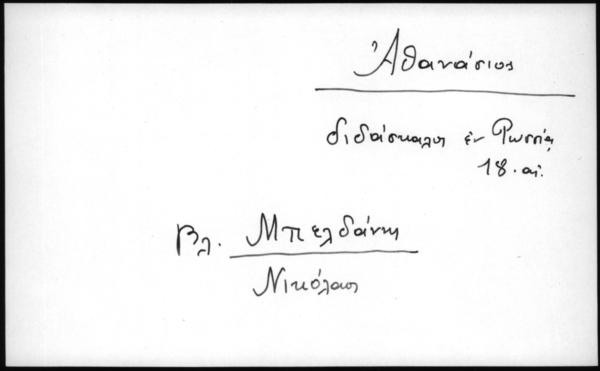 Ἀθανάσιος
διδάσκαλος ἐν Ῥωσσίᾳ
18. αἰ.
Βλ. Μπελδάνης
Νικόλαος